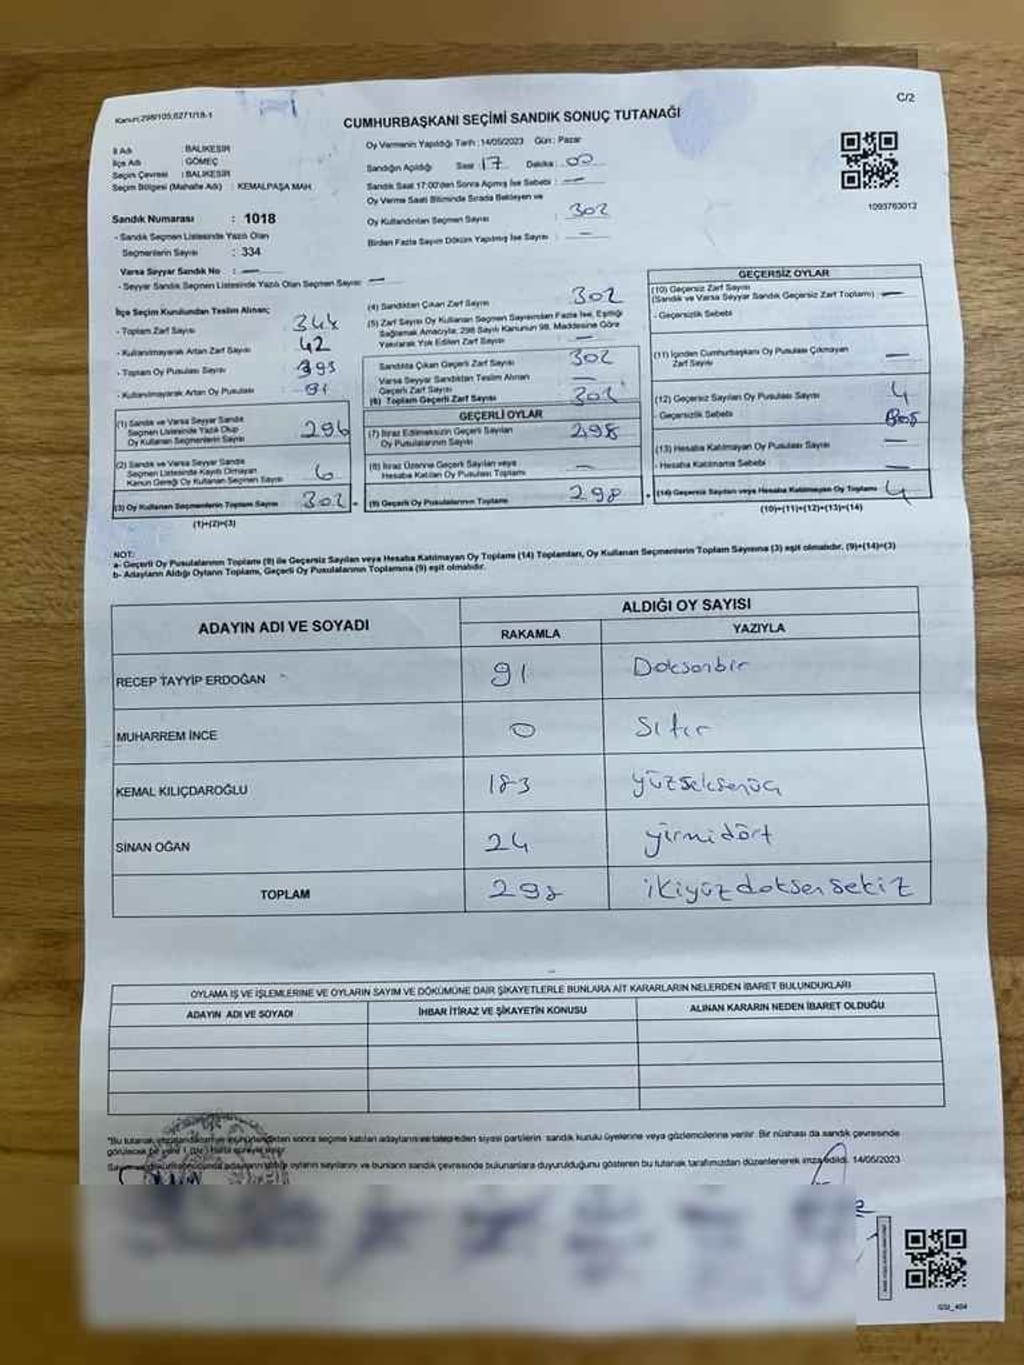 Kanun:298/105,6271/18-1
C/2
CUMHURBAŞKANI SEÇİMİ SANDIK SONUÇ TUTANAĞI
İl Adı : BALIKESİR
İlçe Adı : GÖMEÇ
Seçim Çevresi : BALIKESİR
Seçim Bölgesi (Mahalle Adı) : KEMALPAŞA MAH.
Oy Vermenin Yapıldığı Tarih : 14/05/2023 Gün : Pazar
Sandığın Açıldığı Saat 17 Dakika : 00
Sandık Saat 17:00'den Sonra Açılmış İse Sebebi : —
Oy Verme Saati Bitiminde Sırada Bekleyen ve
Oy Kullandırılan Seçmen Sayısı : 302
Birden Fazla Sayım Döküm Yapılmış İse Sayısı : —
1093763012
Sandık Numarası : 1018
- Sandık Seçmen Listesinde Yazılı Olan
Seçmenlerin Sayısı : 334
Varsa Seyyar Sandık No : —
- Seyyar Sandık Seçmen Listesinde Yazılı Olan Seçmen Sayısı : —
İlçe Seçim Kurulundan Teslim Alınan;
- Toplam Zarf Sayısı
- Kullanılmayarak Artan Zarf Sayısı 42
- Toplam Oy Pusulası Sayısı
- Kullanılmayarak Artan Oy Pusulası 91
(1) Sandık ve Varsa Seyyar Sandık
Seçmen Listesinde Yazılı Olup
Oy Kullanan Seçmenlerin Sayısı 296
(2) Sandık ve Varsa Seyyar Sandık
Seçmen Listesinde Kayıtlı Olmayan
Kanun Gereği Oy Kullanan Seçmen Sayısı 6
(3) Oy Kullanan Seçmenlerin Toplam Sayısı 302 =
(1)+(2)=(3)
(4) Sandıktan Çıkan Zarf Sayısı 302
(5) Zarf Sayısı Oy Kullanan Seçmen Sayısından Fazla İse, Eşitliği
Sağlamak Amacıyla; 298 Sayılı Kanunun 98. Maddesine Göre
Yakılarak Yok Edilen Zarf Sayısı —
Sandıkta Çıkan Geçerli Zarf Sayısı 302
Varsa Seyyar Sandıktan Teslim Alınan
Geçerli Zarf Sayısı —
(6) Toplam Geçerli Zarf Sayısı 302
GEÇERLİ OYLAR
(7) İtiraz Edilmeksizin Geçerli Sayılan
Oy Pusulalarının Sayısı 298
(8) İtiraz Üzerine Geçerli Sayılan veya
Hesaba Katılan Oy Pusulası Toplamı —
(9) Geçerli Oy Pusulalarının Toplamı 298 +
GEÇERSİZ OYLAR
(10) Geçersiz Zarf Sayısı
(Sandık ve Varsa Seyyar Sandık Geçersiz Zarf Toplamı) —
- Geçersizlik Sebebi
(11) İçinden Cumhurbaşkanı Oy Pusulası Çıkmayan
Zarf Sayısı —
(12) Geçersiz Sayılan Oy Pusulası Sayısı 4
- Geçersizlik Sebebi
(13) Hesaba Katılmayan Oy Pusulası Sayısı —
- Hesaba Katılmama Sebebi —
(14) Geçersiz Sayılan veya Hesaba Katılmayan Oy Toplamı 4
(10)+(11)+(12)+(13)=(14)
NOT:
a- Geçerli Oy Pusulaları Toplamı (9) ile Geçersiz Sayılan veya Hesaba Katılmayan Oy Toplamı (14) Toplamları, Oy Kullanan Seçmenlerin Toplam Sayısına (3) eşit olmalıdır. (9)+(14)=(3)
b- Adayların Aldığı Oyların Toplamı, Geçerli Oy Pusulalarının Toplamına (9) eşit olmalıdır.
ADAYIN ADI VE SOYADI
ALDIĞI OY SAYISI
RAKAMLA YAZIYLA
RECEP TAYYİP ERDOĞAN 91 Doksanbir
MUHARREM İNCE 0 Sıfır
KEMAL KILIÇDAROĞLU 183 yüzseksenüç
SİNAN OĞAN 24 yirmidört
TOPLAM 298 ikiyüzdoksansekiz
OYLAMA İŞ VE İŞLEMLERİNE VE OYLARIN SAYIM VE DÖKÜMÜNE DAİR ŞİKAYETLERLE BUNLARA AİT KARARLARIN NELERDEN İBARET BULUNDUKLARI
ADAYIN ADI VE SOYADI İHBAR İTİRAZ VE ŞİKAYETİN KONUSU ALINAN KARARIN NEDEN İBARET OLDUĞU
sonra seçime katılan adayların ve talep eden siyasi partilerin sandık kurulu üyelerine veya gözlemcilerine verilir. Bir nüshası da sandık çevresinde
oyların sayılarını ve bunların sandık çevresinde bulunanlara duyurulduğunu gösteren bu tutanak tarafımızdan düzenlenerek imza edildi. 14/05/2023
GSI_404